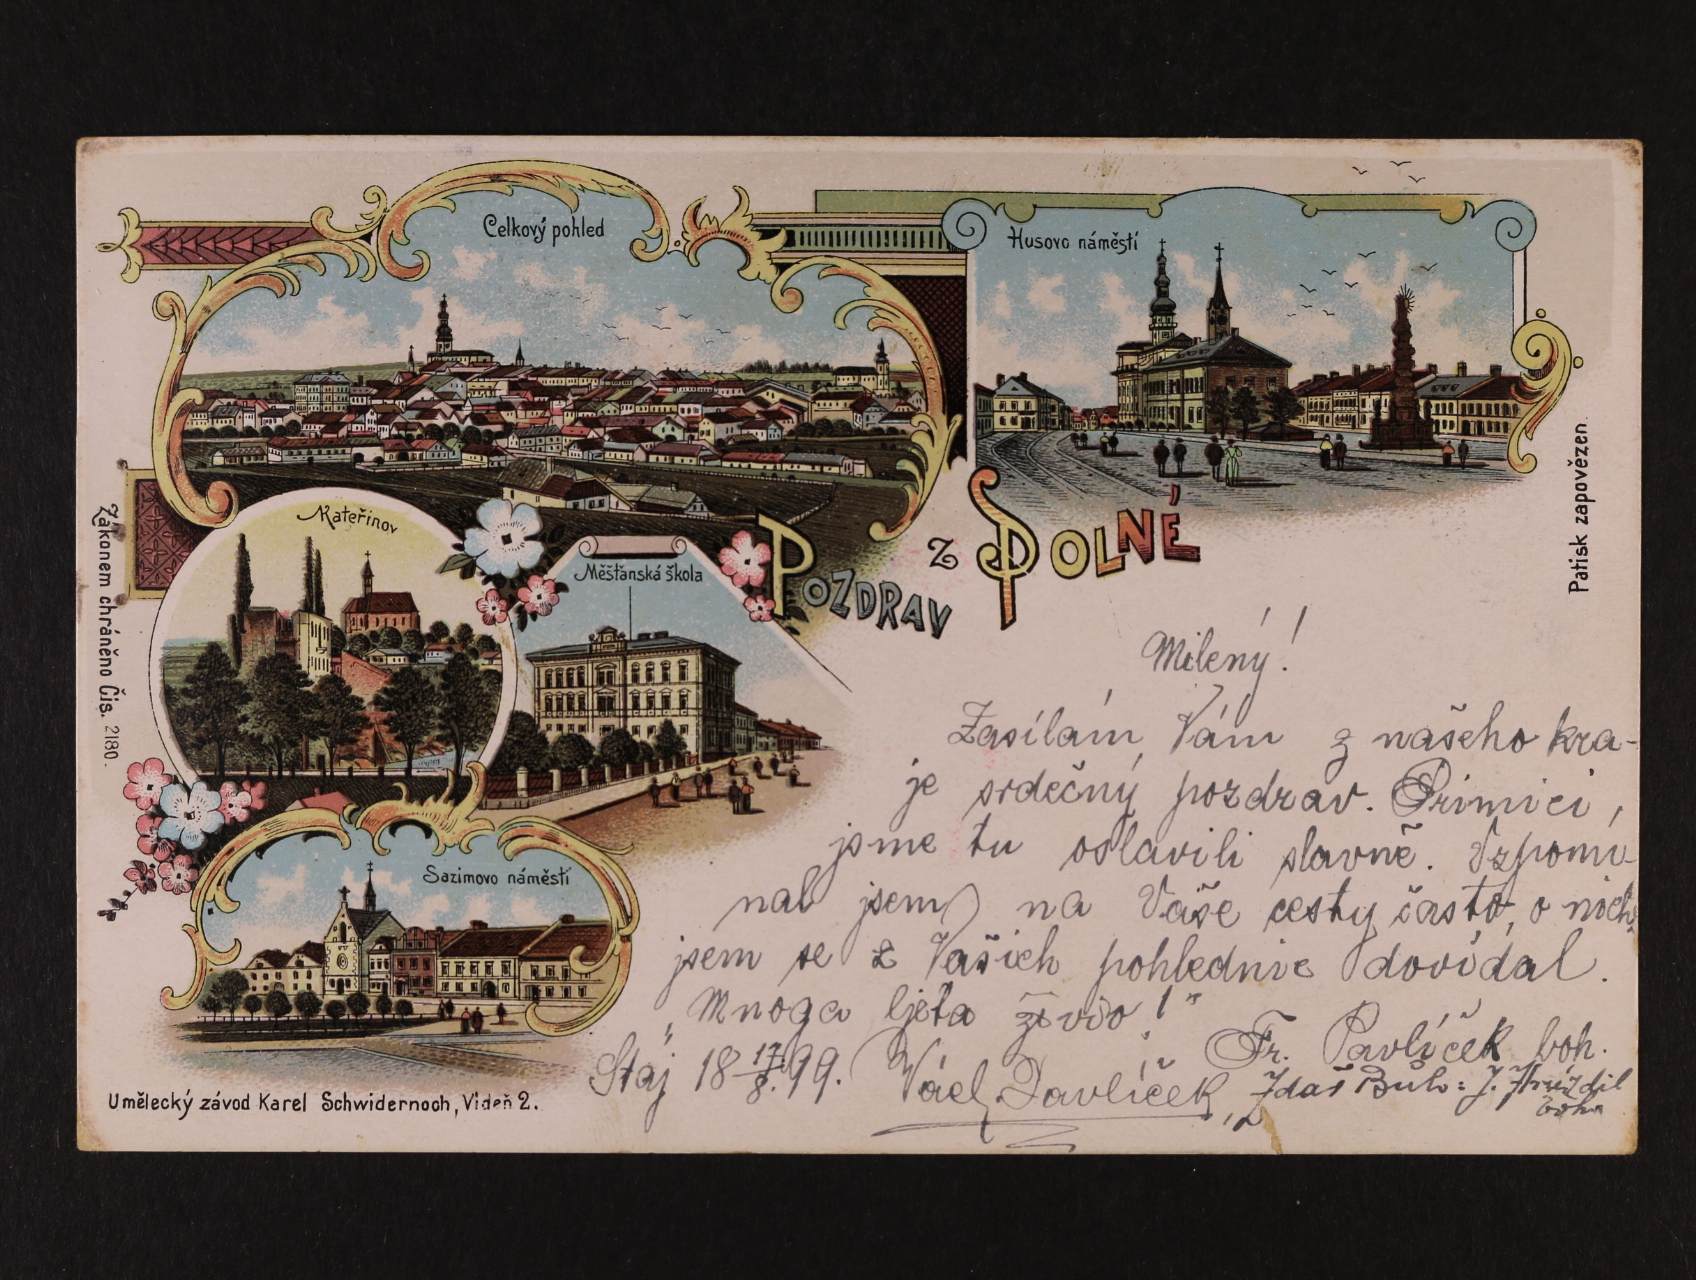 Celkový pohled
Husovo náměstí
Kateřinov
Měšťanská škola
Pozdrav z Polné
Sazimovo náměstí
Zákonem chráněno Čis. 2180.
Patisk zapovězen.
Umělecký závod Karel Schwidernoch, Videň 2.
Milený!
Zasílám Vám z našeho kra-
je srdečný pozdrav. Primici,
jsme tu oslavili slavně. Vzpomí
nal jsem na Vaše cesty často, o nich
jsem se z Vašich pohlednic dovídal.
"Mnoga ljeta živio!"
Fr. Pavlíček boh.
Stáj 18 17/8. 99. Václ. Pavlíček